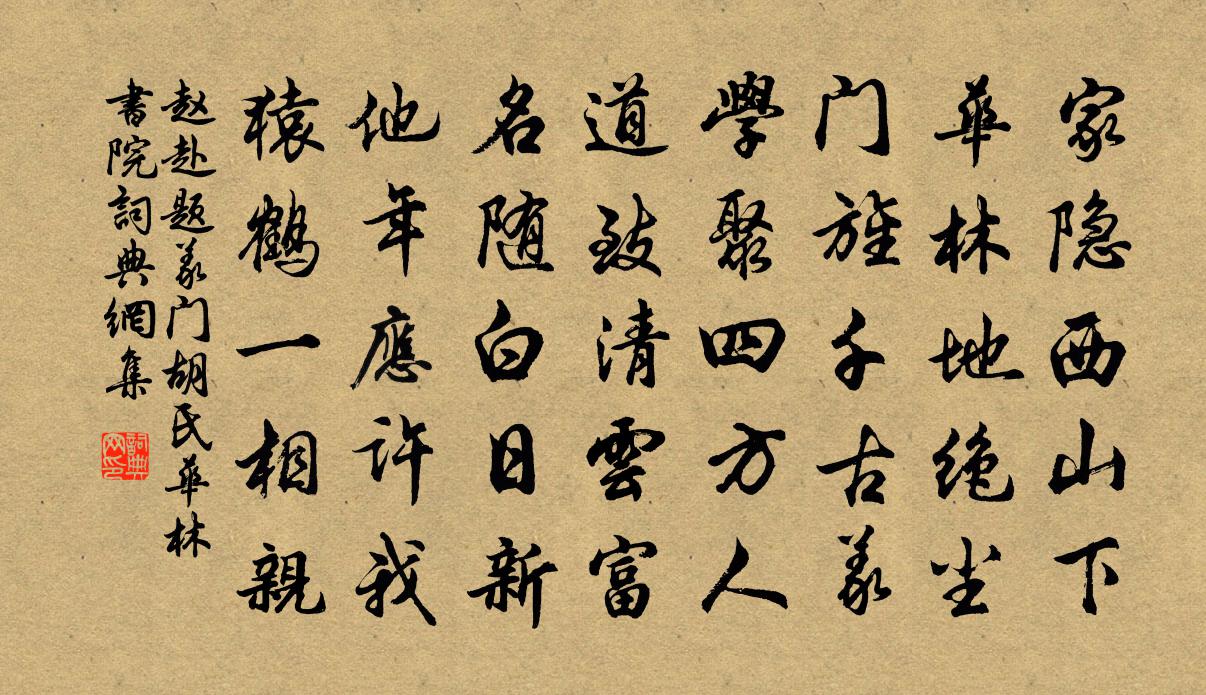 家隐西山下
華林地绝尘
门旌千古義
學聚四方人
道致清雲富
名随白日新
他年應许我
猿鶴一相親
赵赴题義门胡氏華林
書院詞典網集
詞典
网印